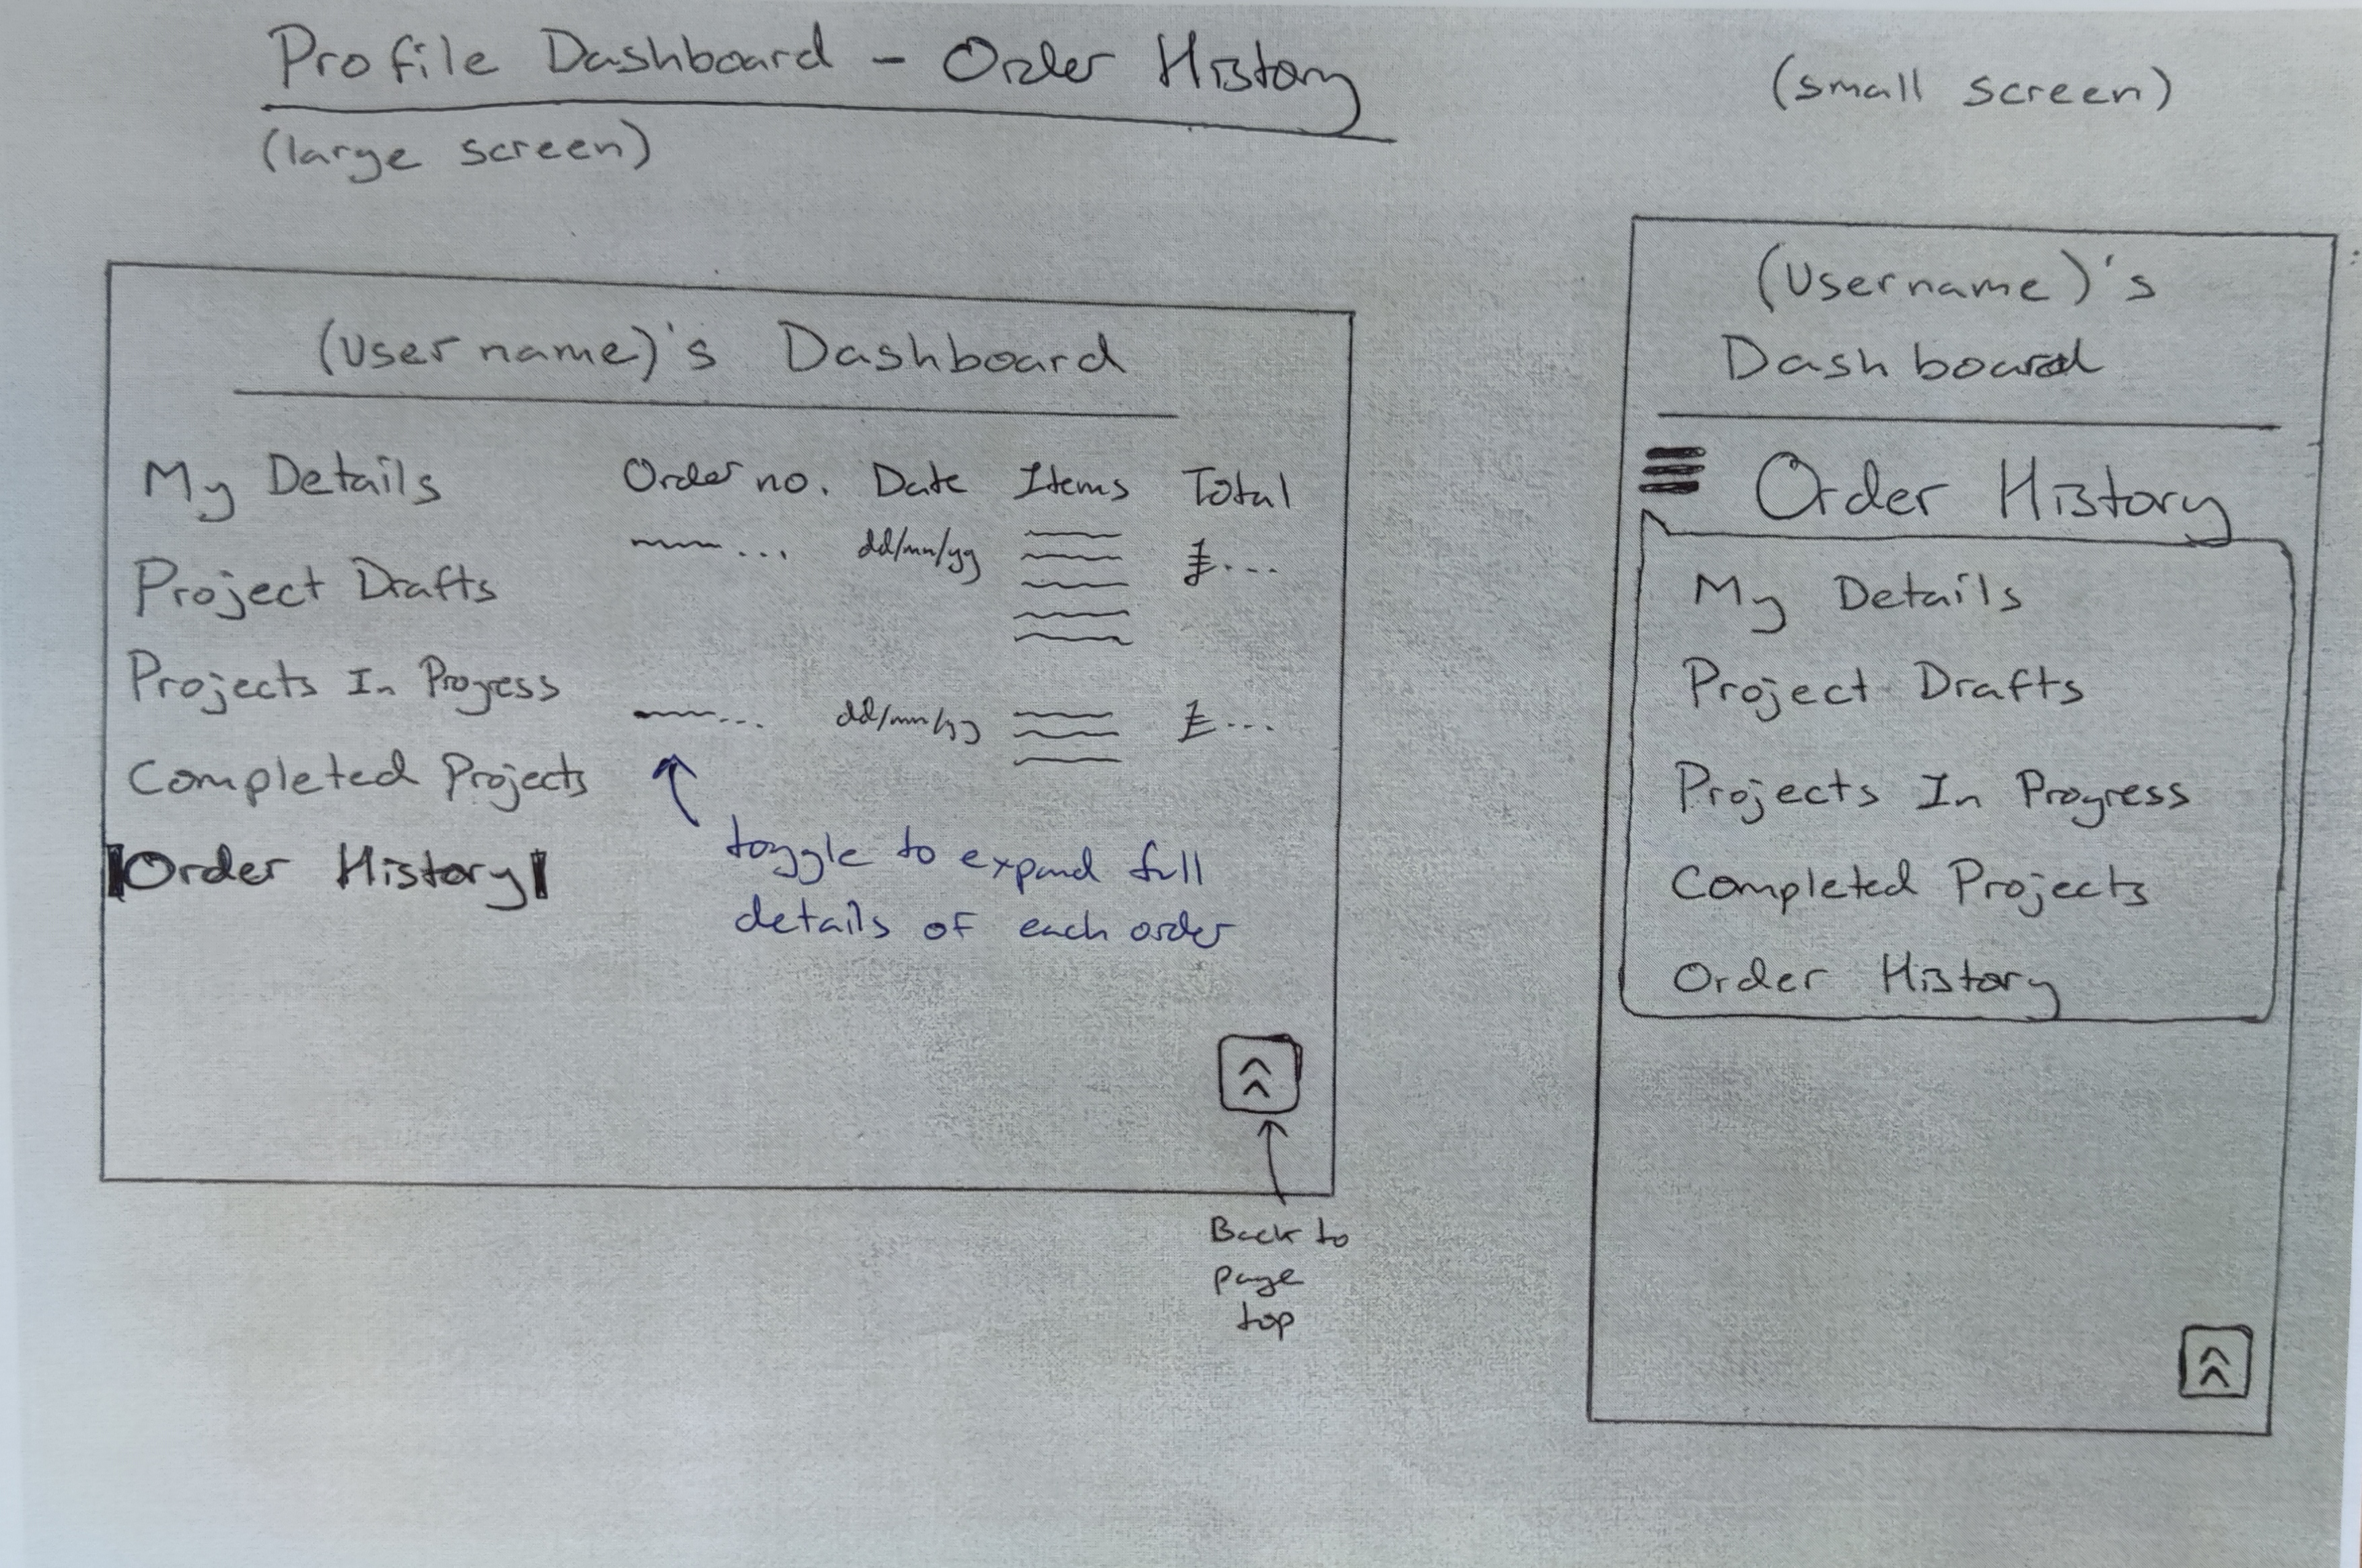 Profile Dashboard - Order History
(large screen)
(small screen)
(Username)'s Dashboard
My Details
Project Drafts
Projects In Progress
Completed Projects
Order History
Order no. Date Items Total
... dd/mm/yy £...
... dd/mm/yy £...
toggle to expand full
details of each order
Back to
page
top
(Username)'s
Dashboard
Order History
My Details
Project Drafts
Projects In Progress
Completed Projects
Order History